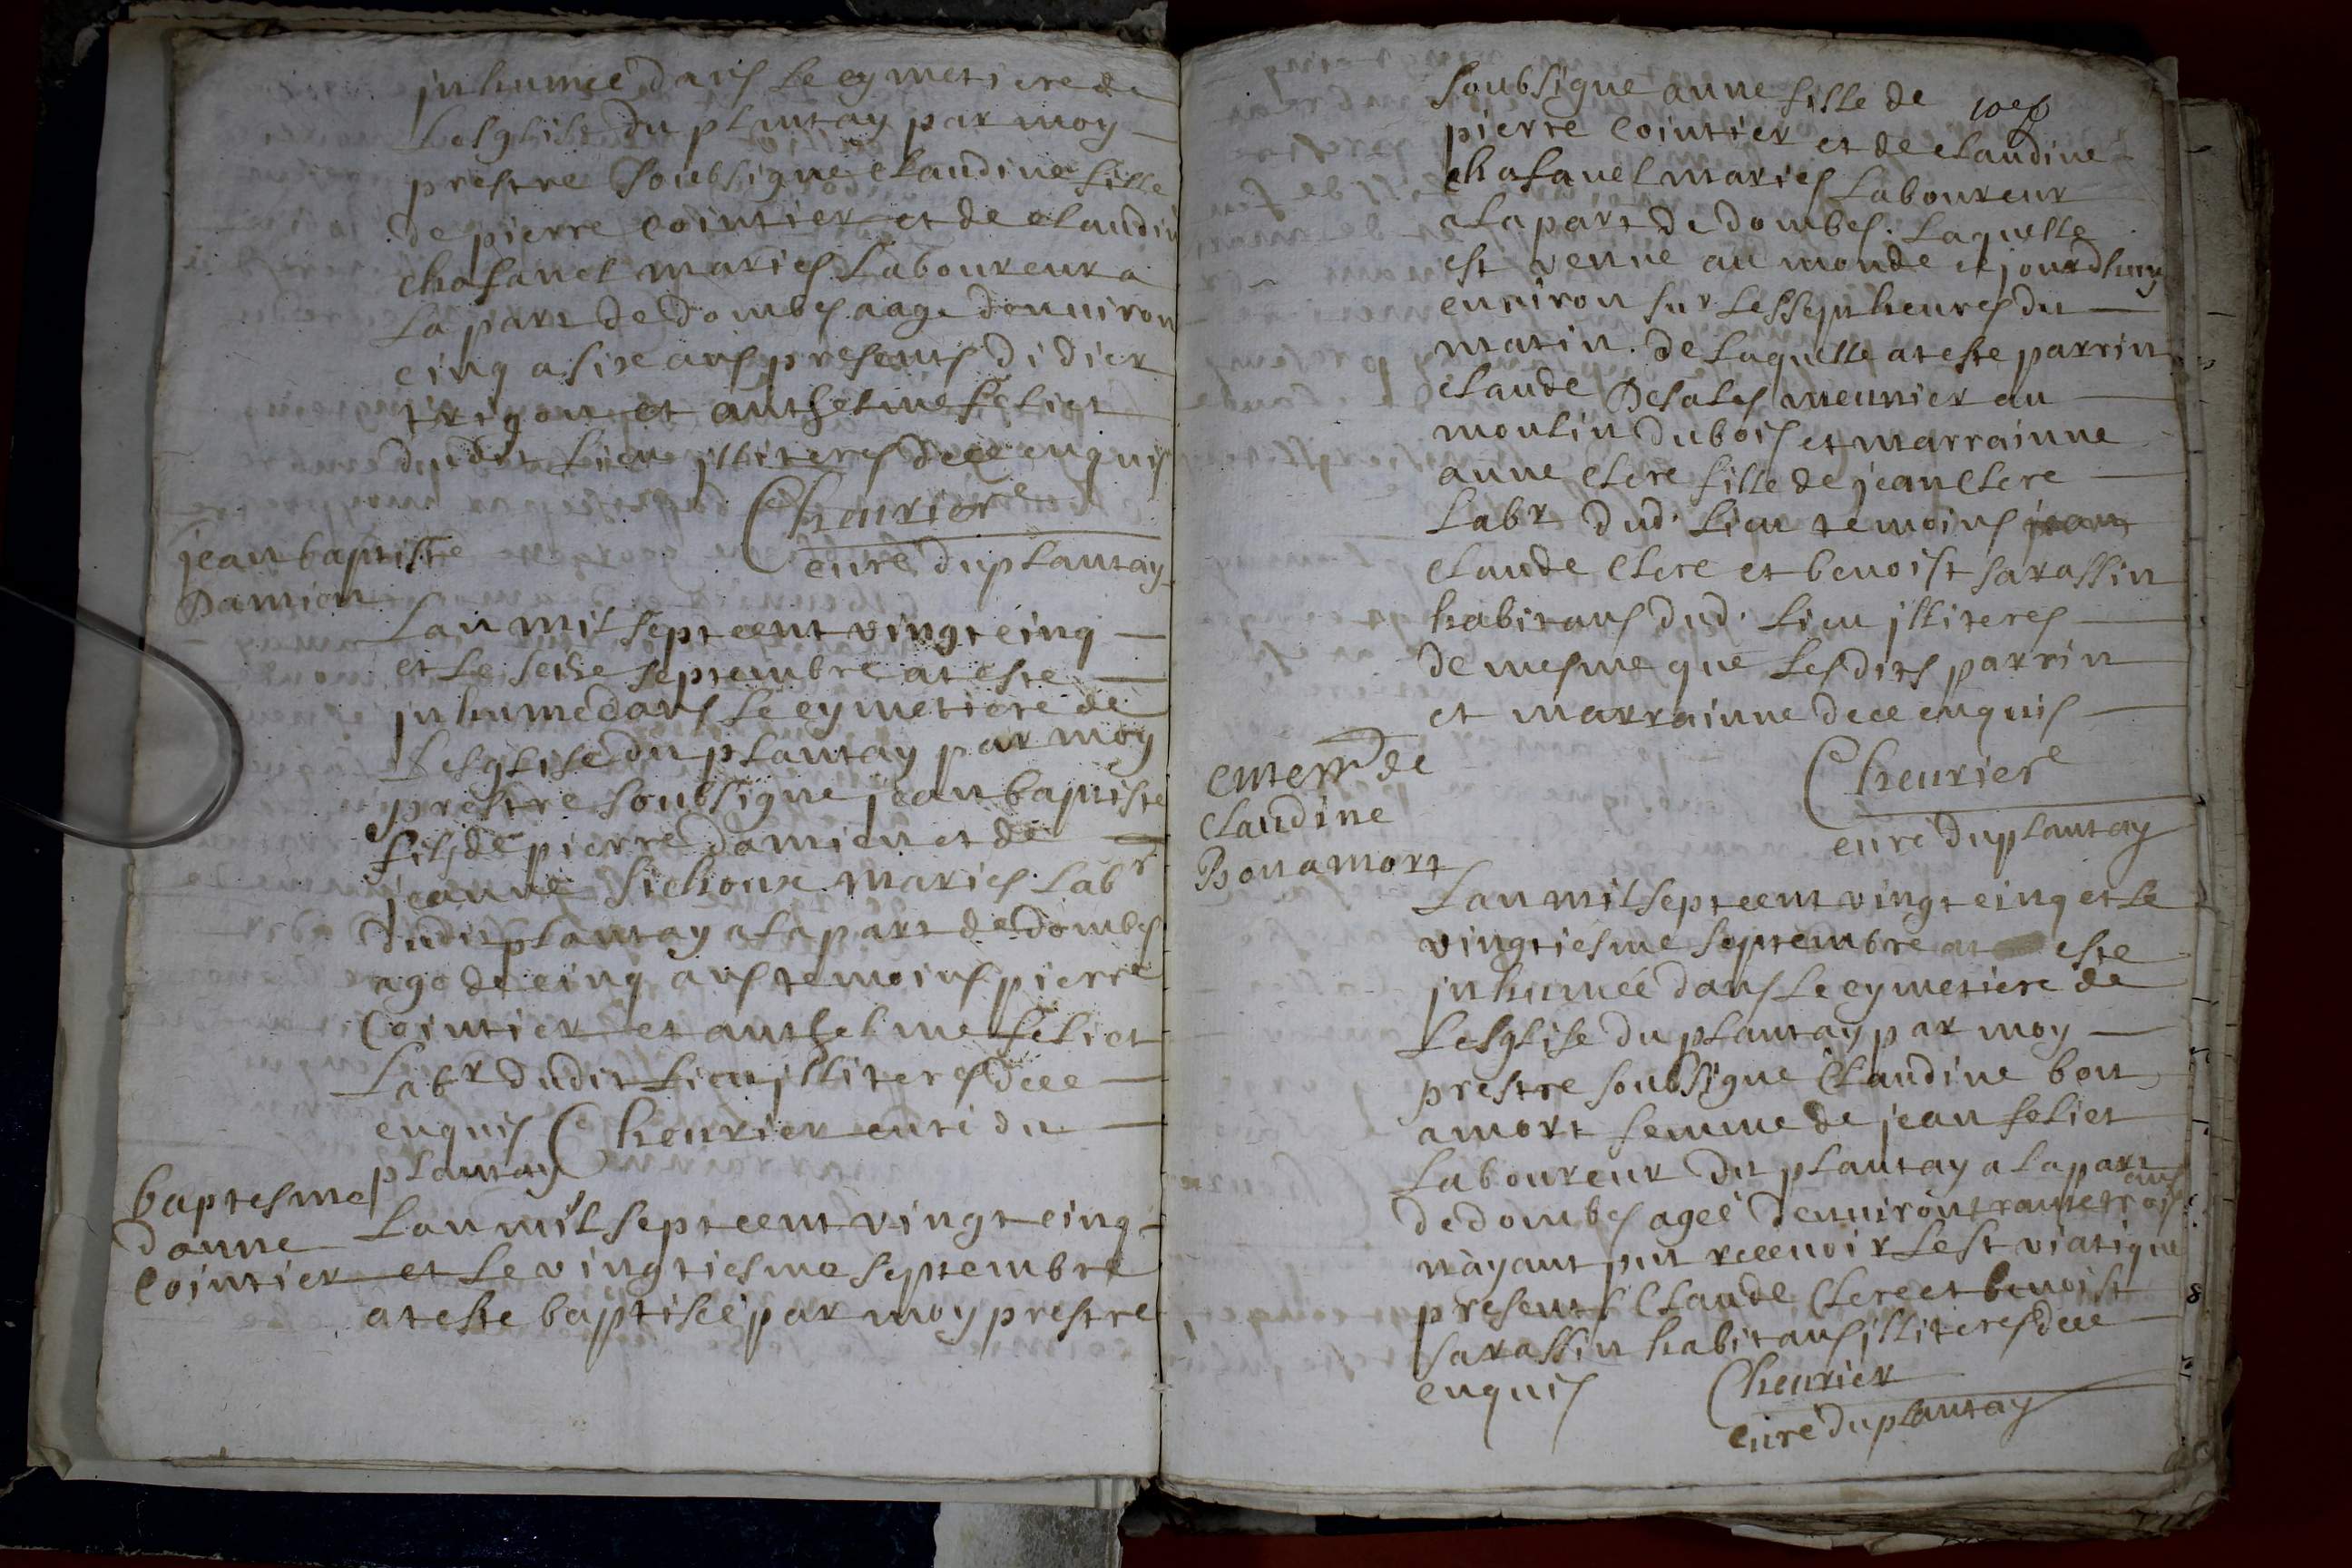 jnhumée dans le cymetiere de
Lesglise du plantay par moy
prestre soubsigné Claudine fille
de pierre Cointier et de Claudine
chafanel mariés Laboureur a
La part de dombes aage denuiron
cinq a six ans presents didier
trigon et anthelme feliet
dudit Lieu jlliterés de ce enquis
Cheurier
curé du plantay
jean baptiste
Damien
Lan mil sept cent vingt cinq
et le seize septembre at este
jnhumé dans le cymetiere de
Lesglise du plantay par moy
prestre soubsigné jean baptiste
fils de pierre damien et de
jeanne sichoux mariés Labr
dudit plantay a la part de dombes
agé de cinq ans temoins pierre
Cointier et anthelme feliet
Labr dudit Lieu jlliterés de ce
enquis Cheurier curé du
plantay
baptesme
danne
Cointier
Lan mil sept cent vingt cinq
et le vingtiesme septembre
at este baptisée par moy prestre
soubsigné anne fille de
pierre Cointier et de claudine
chafanel mariés Laboureur
a la part de dombes. Laquelle
est venue au monde cejourdhuy
enuiron sur les sept heures du
matin. de laquelle at este parrin
claude Desales meunier au
moulin dubois et marrainne
anne Clere fille de jean Clere
Labr dud. Lieu temoins jean
claude Clere et benoist sarassin
habitans dud. Lieu jlliterés
de mesme que lesdits parrin
et marrainne de ce enquis
Cheurier
curé du plantay
enterrt de
Claudine
Bonamort
Lan mil sept cent vingt cinq et le
vingtiesme septembre at este
jnhumée dans le cymetiere de
Lesglise du plantay par moy
prestre soubsigné Claudine bon
amort femme de jean feliet
Laboureur du plantay a la part
de dombes ageé denuiron trante trois ans
nayant put receuoir le st viatique
presents Claude Clere et benoist
sarassin habitans jlliterés de ce
enquis
Cheurier
curé du plantay